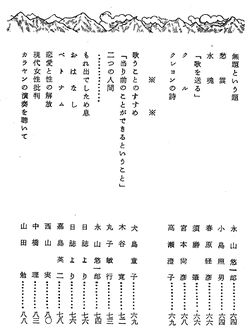 無題という題 永山悠一郎 六四
愁雲 小島照男 六四
水魂 春原経 六五
「歌を送る」 須勝肇 六六
クル 宮本尚彦 六七
クレヨンの詩 高瀬澄子 六八
※ ※
歌うことのすすめ 犬島童子 六九
「当り前のことができるということ」 木谷寛 七二
二つの人間 丸子敏行 七三
………… 永山悠一郎 七四
もれ出でしため息 日誌より
おはなし 日誌より
ベトナム 嘉島英二 七八
恋愛と性の解放 西山実 八〇
現代女性批判 中橋理 八三
カラヤンの演奏を聴いて 山田勉 八八